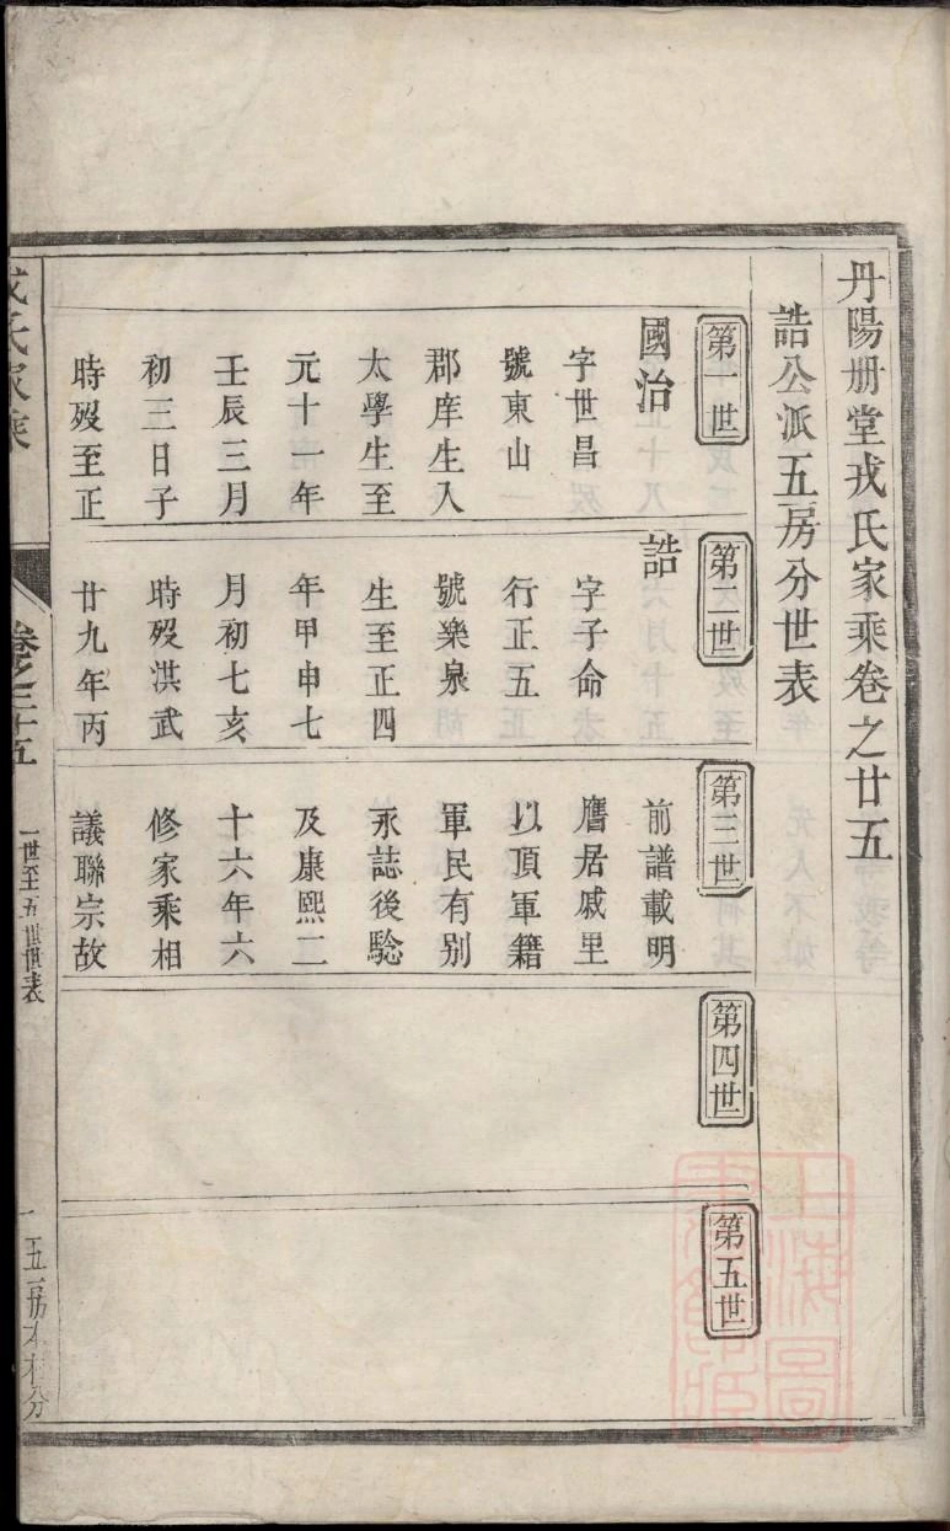 丹陽册堂戎氏家乘卷之廿五
誥公派五房分世表
第一世
國治
字世昌
號東山
郡庠生入
太學生至
元十一年
壬辰三月
初三日子
時歿至正
第二世
誥
字子命
行正五
號樂泉
生至正四
年甲申七
月初七亥
時歿洪武
廿九年丙
第三世
前譜載明
贋居戚里
以頂軍籍
軍民有别
永誌後騐
及康熙二
十六年六
修家乘相
議聯宗故
第四世
第五世
戎氏家乘
卷之二十五
一世至五世世表
一
五房本枝分
上海圖